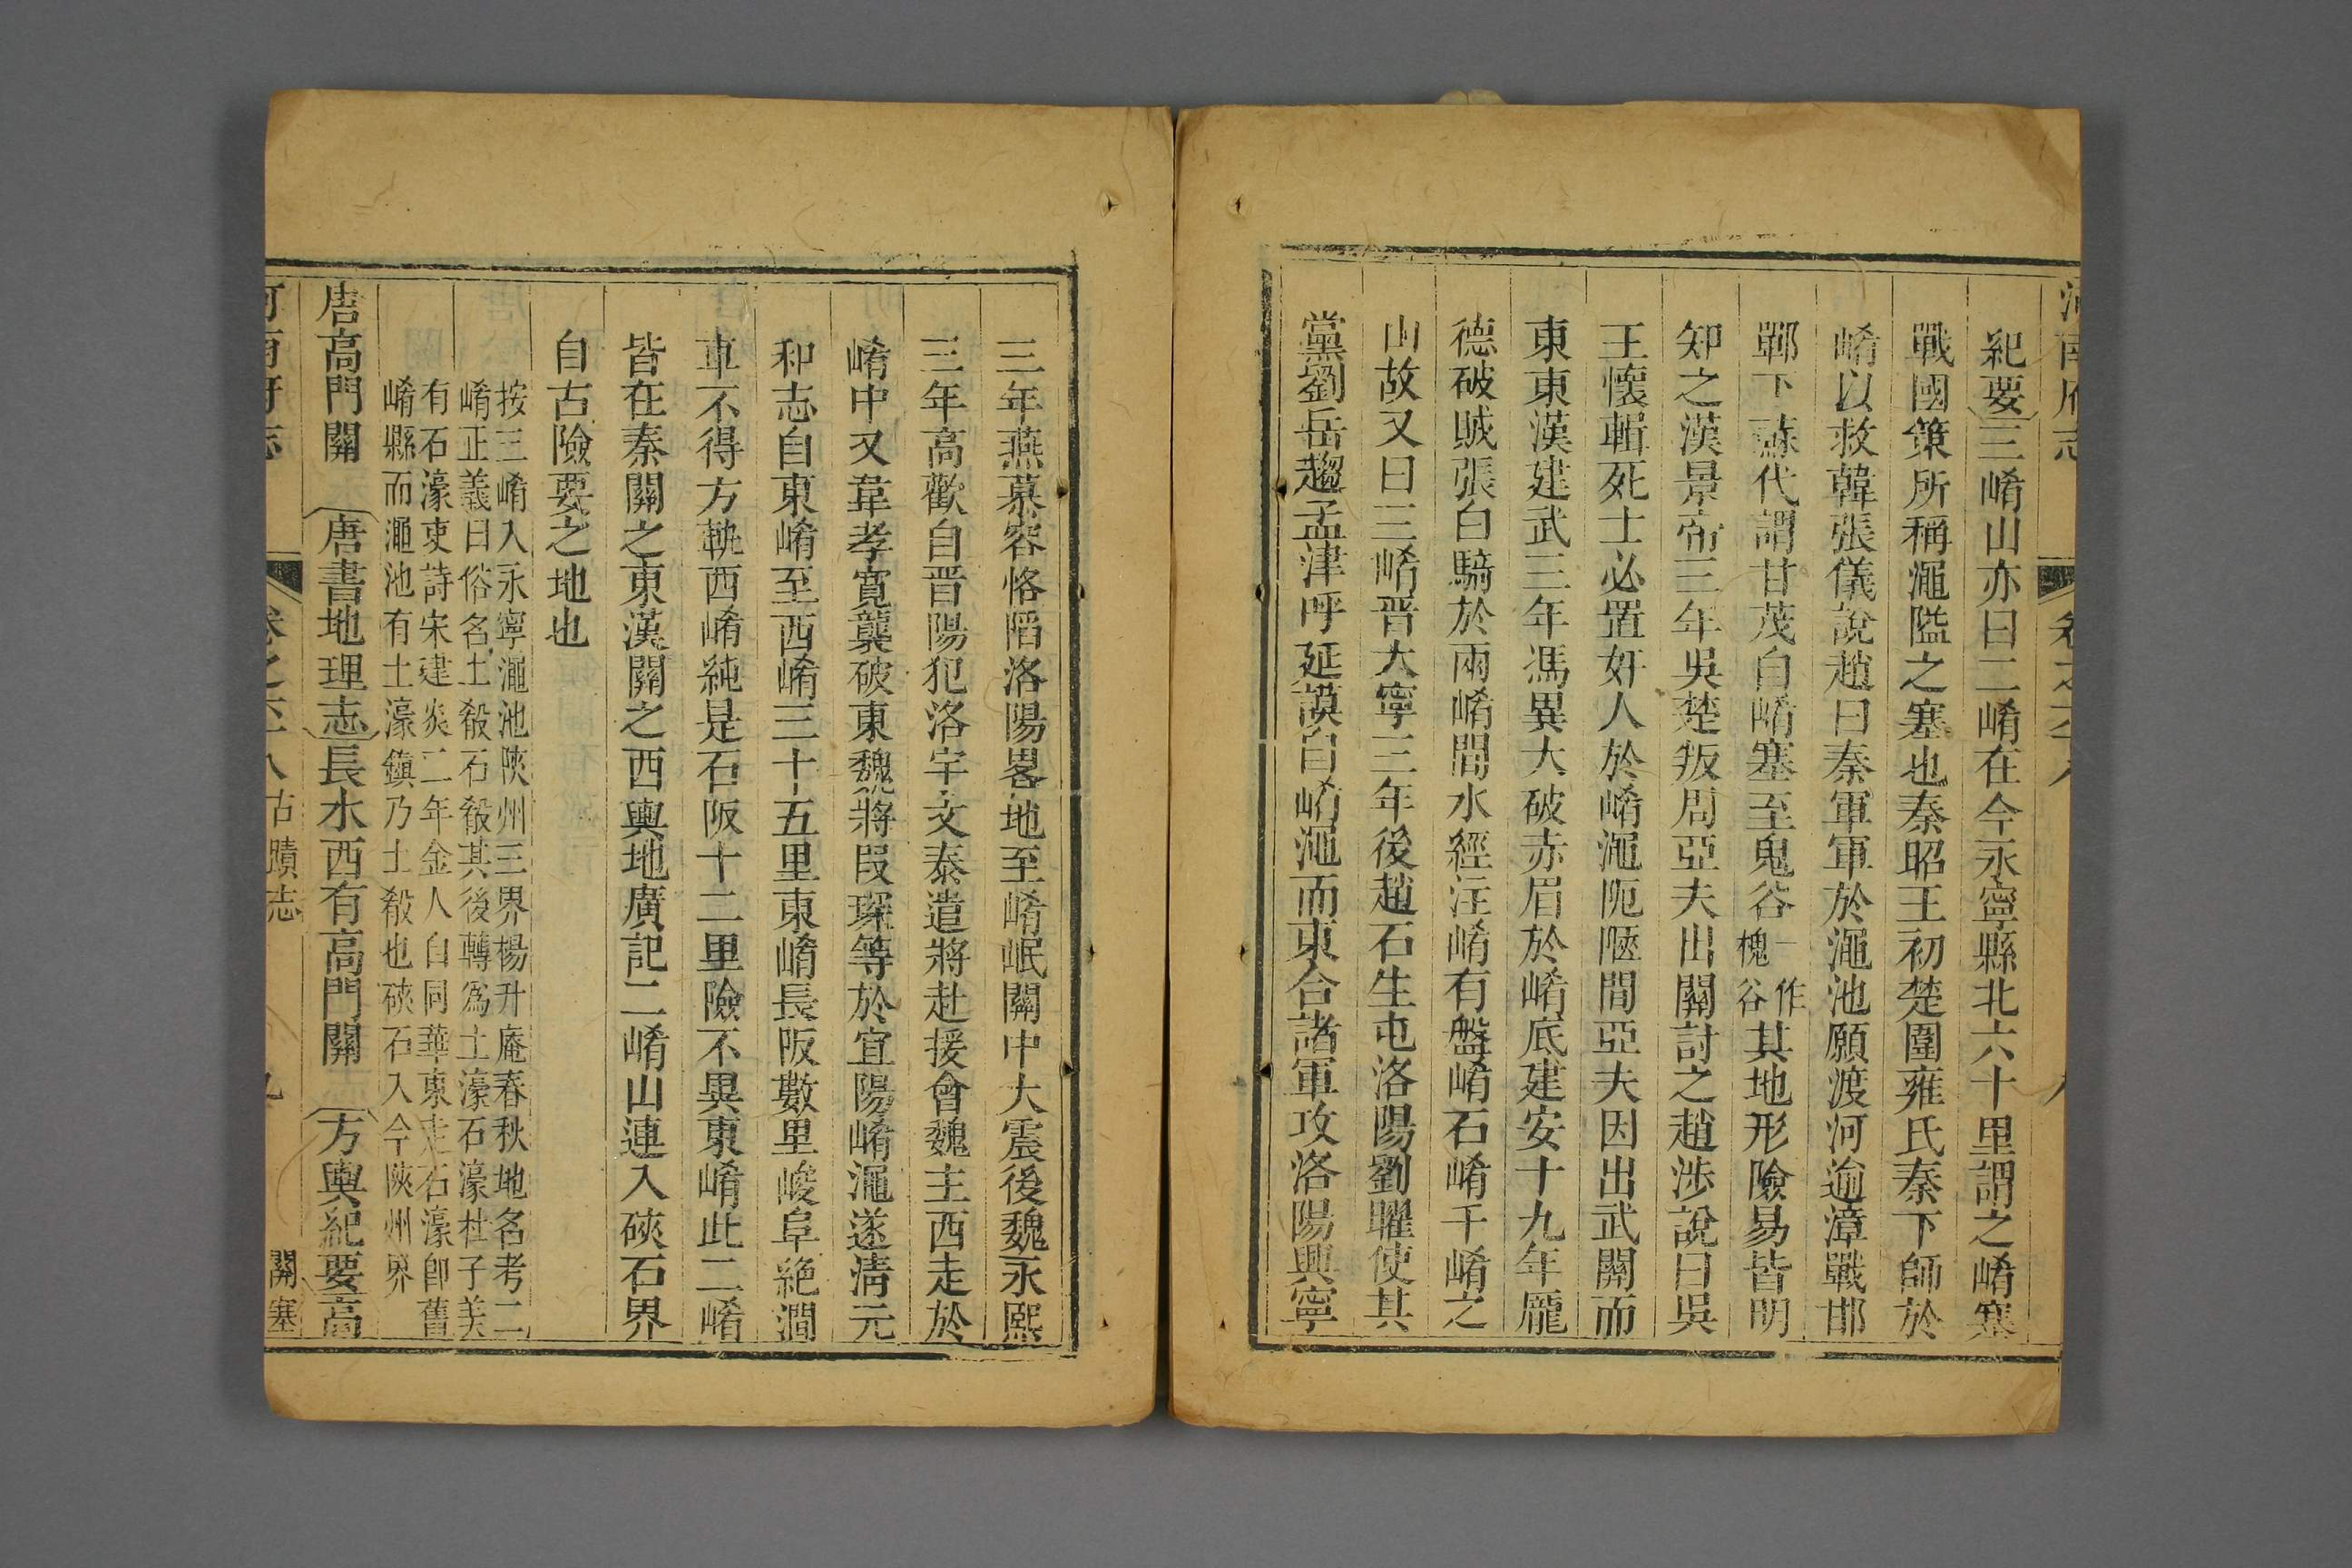 河南府志
卷之六八
紀要三崤山亦曰二崤在今永寧縣北六十里謂之崤塞
戰國策所稱澠隘之塞也秦昭王初楚圍雍氏秦下師於
崤以救韓張儀說趙曰秦軍軍於澠池願渡河逾漳戰邯
鄲下蘇代謂甘茂自崤塞至鬼谷一作槐谷其地形險易皆明
知之漢景帝三年吳楚叛周亞夫出關討之趙涉說曰吳
王懷輯死士必置奸人於崤澠阨陿間亞夫因出武關而
東東漢建武三年馮異大破赤眉於崤底建安十九年龐
德破賊張白騎於兩崤間水經注崤有盤崤石崤千崤之
山故又曰三崤晉太寧三年後趙石生屯洛陽劉曜使其
黨劉岳趨孟津呼延謨自崤澠而東合諸軍攻洛陽興寧
三年燕慕容恪陷洛陽畧地至崤岷關中大震後魏永熙
三年高歡自晉陽犯洛宇文泰遣將赴援會魏主西走於
崤中又韋孝寬襲破東魏將段琛等於宜陽崤澠遂淸元
和志自東崤至西崤三十五里東崤長阪數里峻阜絕澗
車不得方軌西崤純是石阪十二里險不異東崤此二崤
皆在秦關之東漢關之西輿地廣記二崤山連入硤石界
自古險要之地也
按三崤入永寧澠池陝州三界楊升庵春秋地名考二
崤正義曰俗名土殽石殽其後轉爲土濠石濠杜子美
有石濠吏詩宋建炎二年金人自同華東走石濠卽舊
崤縣而澠池有土濠鎮乃土殽也硤石入今陝州界
唐高門關 唐書地理志長水西有高門關 方輿紀要高
河南府志
卷之六八 古蹟志
九
關塞